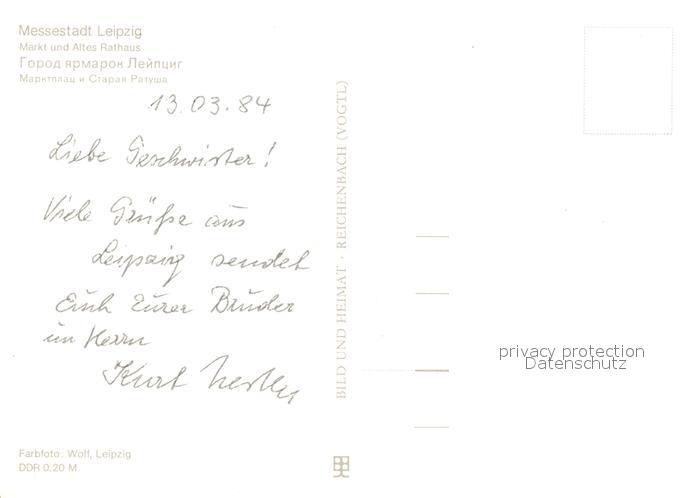 Messestadt Leipzig
Markt und Altes Rathaus
Город ярмарок Лейпциг
Марктплац и Старая Ратуша
13.03.84
Liebe Geschwister!
Viele Grüße aus
Leipzig sendet
Euch Eurer Bruder
im Herrn
Kurt
BILD UND HEIMAT · REICHENBACH (VOGTL)
privacy protection
Datenschutz
Farbfoto: Wolf, Leipzig
DDR 0,20 M